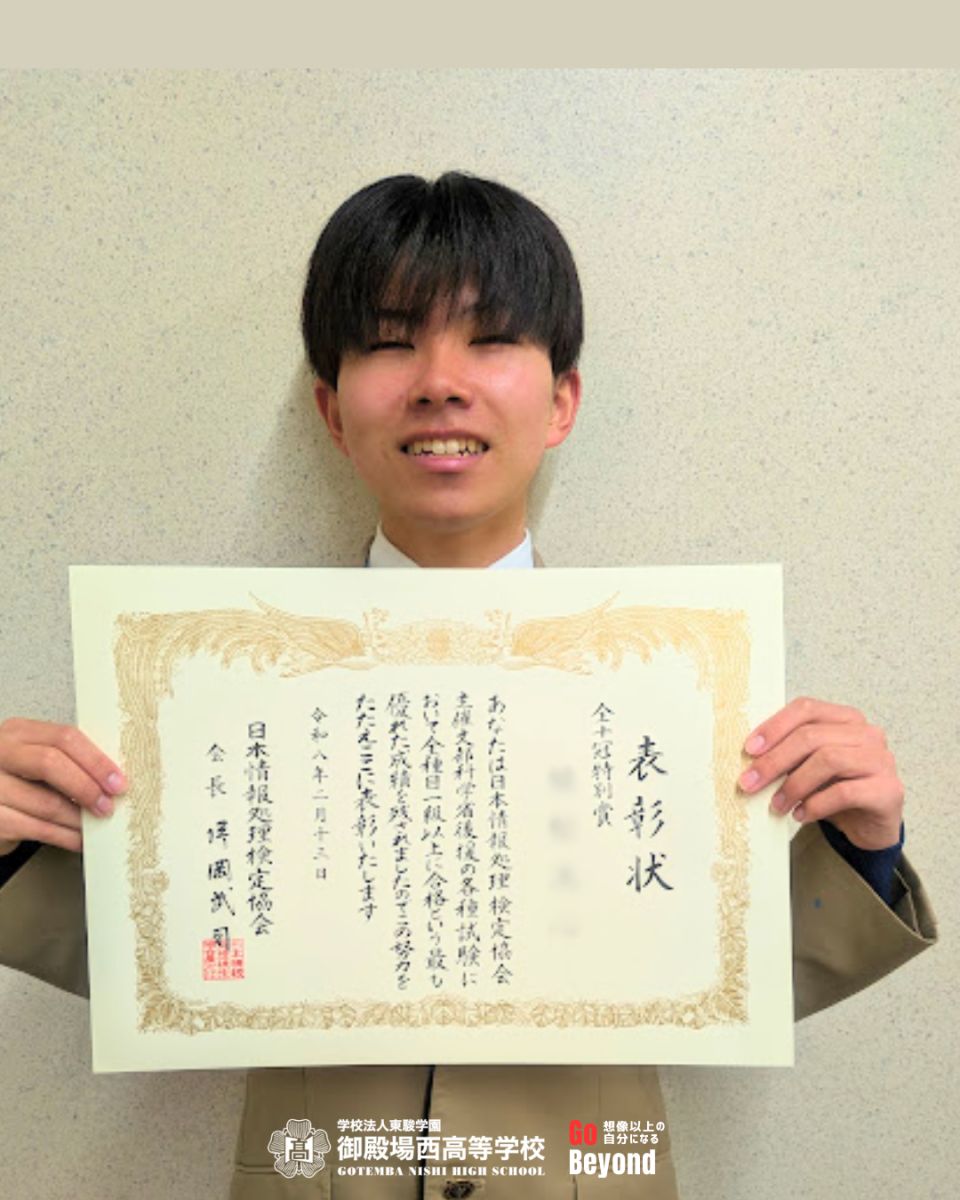 表彰状
全七冠特別賞
あなたは日本情報処理検定協会
主催文部科学省後援の各種試験に
おいて全種目一級以上に合格という最も
優れた成績を残されましたのでこの努力を
たたえここに表彰いたします
令和八年二月十三日
日本情報処理検定協会
会長 坪岡武司
学校法人東駿学園
御殿場西高等学校
GOTEMBA NISHI HIGH SCHOOL
Go 想像以上の
自分になる
Beyond